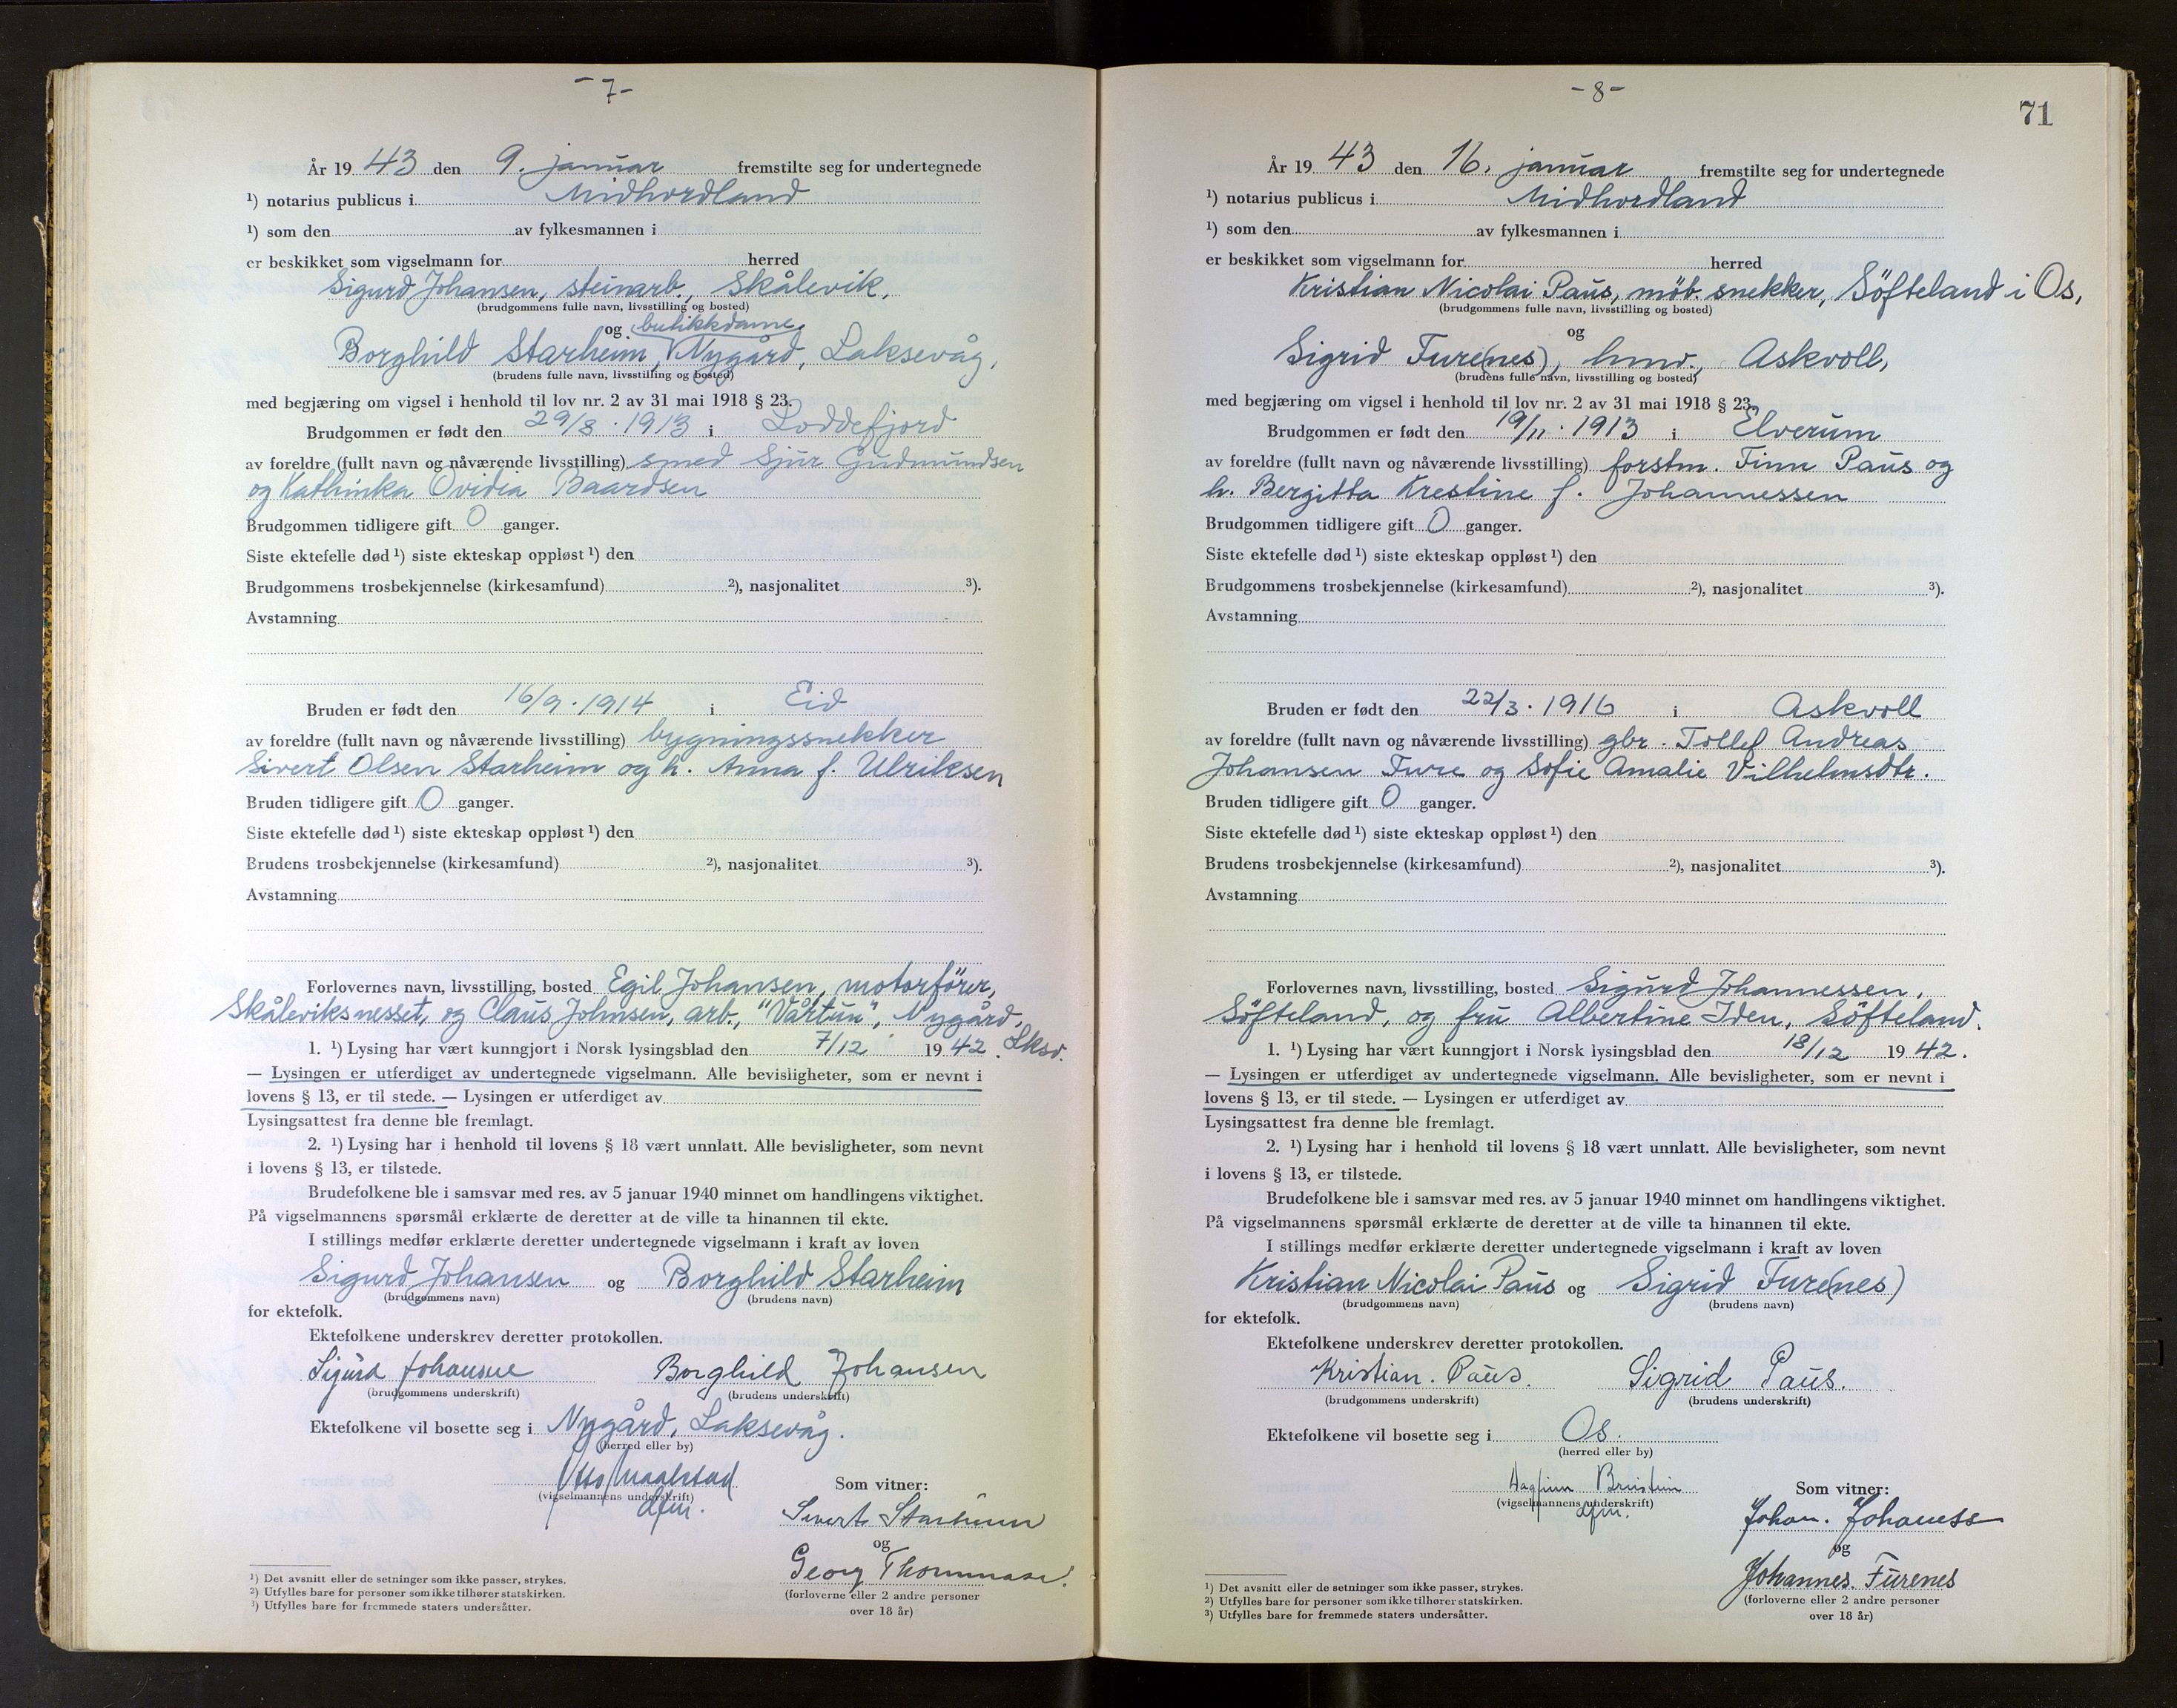 -7-
År 19 43 den 9. januar fremstilte seg for undertegnede
¹) notarius publicus i Midhordland
¹) som den av fylkesmannen i
er beskikket som vigselmann for herred
Sigurd Johansen, steinarb., Skålevik,
(brudgommens fulle navn, livsstilling og bosted)
og butikkdame,
Borghild Starheim, Nygård, Laksevåg,
(brudens fulle navn, livsstilling og bosted)
med begjæring om vigsel i henhold til lov nr. 2 av 31 mai 1918 § 23.
Brudgommen er født den 29/8 . 1913 i Loddefjord
av foreldre (fullt navn og nåværende livsstilling) smed Sjur Gudmundsen
og Kathinka Ovidia Baardsen
Brudgommen tidligere gift 0 ganger.
Siste ektefelle død ¹) siste ekteskap oppløst ¹) den
Brudgommens trosbekjennelse (kirkesamfund) ²), nasjonalitet ³).
Avstamning
Bruden er født den 16/9 . 1914 i Eid
av foreldre (fullt navn og nåværende livsstilling) bygningssnekker
Sivert Olsen Starheim og h. Anna f. Ulriksen
Bruden tidligere gift 0 ganger.
Siste ektefelle død ¹) siste ekteskap oppløst ¹) den
Brudens trosbekjennelse (kirkesamfund) ²), nasjonalitet ³).
Avstamning
Forlovernes navn, livsstilling, bosted Egil Johansen, motorfører,
Skåleviksnesset, og Claus Johnsen, arb., "Vårtun", Nygård,
Lksv.
1. ¹) Lysing har vært kunngjort i Norsk lysingsblad den 7/12 19 42.
— Lysingen er utferdiget av undertegnede vigselmann. Alle bevisligheter, som er nevnt i
lovens § 13, er til stede. — Lysingen er utferdiget av
Lysingsattest fra denne ble fremlagt.
2. ¹) Lysing har i henhold til lovens § 18 vært unnlatt. Alle bevisligheter, som nevnt
i lovens § 13, er tilstede.
Brudefolkene ble i samsvar med res. av 5 januar 1940 minnet om handlingens viktighet.
På vigselmannens spørsmål erklærte de deretter at de ville ta hinannen til ekte.
I stillings medfør erklærte deretter undertegnede vigselmann i kraft av loven
Sigurd Johansen og Borghild Starheim
(brudgommens navn) (brudens navn)
for ektefolk.
Ektefolkene underskrev deretter protokollen.
Sigurd Johansen Borghild Johansen
(brudgommens underskrift) (brudens underskrift)
Ektefolkene vil bosette seg i Nygård, Laksevåg.
(herred eller by)
Otto
(vigselmannens underskrift)
dfm.
Som vitner:
Sivert Starheim
og
Georg
(forloverne eller 2 andre personer
over 18 år)
¹) Det avsnitt eller de setninger som ikke passer, strykes.
²) Utfylles bare for personer som ikke tilhører statskirken.
³) Utfylles bare for fremmede staters undersåtter.
-8-
71
År 19 43 den 16. januar fremstilte seg for undertegnede
¹) notarius publicus i Midhordland
¹) som den av fylkesmannen i
er beskikket som vigselmann for herred
Kristian Nicolai Paus, møb. snekker, Söfteland i Os,
(brudgommens fulle navn, livsstilling og bosted)
og
Sigrid Fure(nes), hmv., Askvoll,
(brudens fulle navn, livsstilling og bosted)
med begjæring om vigsel i henhold til lov nr. 2 av 31 mai 1918 § 23.
Brudgommen er født den 19/11 . 1913 i Elverum
av foreldre (fullt navn og nåværende livsstilling) forstm. Finn Paus og
h. Bergitta Krestine f. Johannessen
Brudgommen tidligere gift 0 ganger.
Siste ektefelle død ¹) siste ekteskap oppløst ¹) den
Brudgommens trosbekjennelse (kirkesamfund) ²), nasjonalitet ³).
Avstamning
Bruden er født den 22/3 . 1916 i Askvoll
av foreldre (fullt navn og nåværende livsstilling) gbr. Tollef Andreas
Johansen Fure og Sofie Amalie Vilhelmsdtr.
Bruden tidligere gift 0 ganger.
Siste ektefelle død ¹) siste ekteskap oppløst ¹) den
Brudens trosbekjennelse (kirkesamfund) ²), nasjonalitet ³).
Avstamning
Forlovernes navn, livsstilling, bosted Sigurd Johannessen,
Söfteland, og fru Albertine Iden, Söfteland.
1. ¹) Lysing har vært kunngjort i Norsk lysingsblad den 18/12 19 42.
— Lysingen er utferdiget av undertegnede vigselmann. Alle bevisligheter, som er nevnt i
lovens § 13, er til stede. — Lysingen er utferdiget av
Lysingsattest fra denne ble fremlagt.
2. ¹) Lysing har i henhold til lovens § 18 vært unnlatt. Alle bevisligheter, som nevnt
i lovens § 13, er tilstede.
Brudefolkene ble i samsvar med res. av 5 januar 1940 minnet om handlingens viktighet.
På vigselmannens spørsmål erklærte de deretter at de ville ta hinannen til ekte.
I stillings medfør erklærte deretter undertegnede vigselmann i kraft av loven
Kristian Nicolai Paus og Sigrid Fure(nes)
(brudgommens navn) (brudens navn)
for ektefolk.
Ektefolkene underskrev deretter protokollen.
Kristian. Paus. Sigrid Paus.
(brudgommens underskrift) (brudens underskrift)
Ektefolkene vil bosette seg i Os.
(herred eller by)
(vigselmannens underskrift)
dfm.
Som vitner:
Johan.
og
Johannes. Furenes
(forloverne eller 2 andre personer
over 18 år)
¹) Det avsnitt eller de setninger som ikke passer, strykes.
²) Utfylles bare for personer som ikke tilhører statskirken.
³) Utfylles bare for fremmede staters undersåtter.